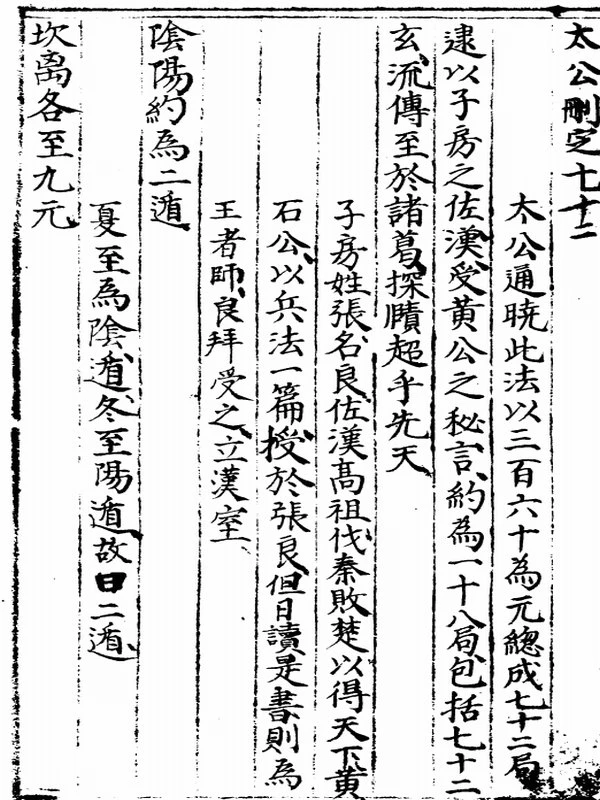 太公刪定七十二
太公通曉此法以三百六十為元總成七十二局
逮以子房之佐漢受黃公之秘言約為一十八局包括七十二
玄流傳至於諸葛探賾超乎先天
子房姓張名良佐漢高祖伐秦敗楚以得天下黃
石公以兵法一篇授於張良但日讀是書則為
王者師良拜受之立漢室
陰陽約為二遁
夏至為陰遁冬至陽遁故曰二遁
坎离各至九元